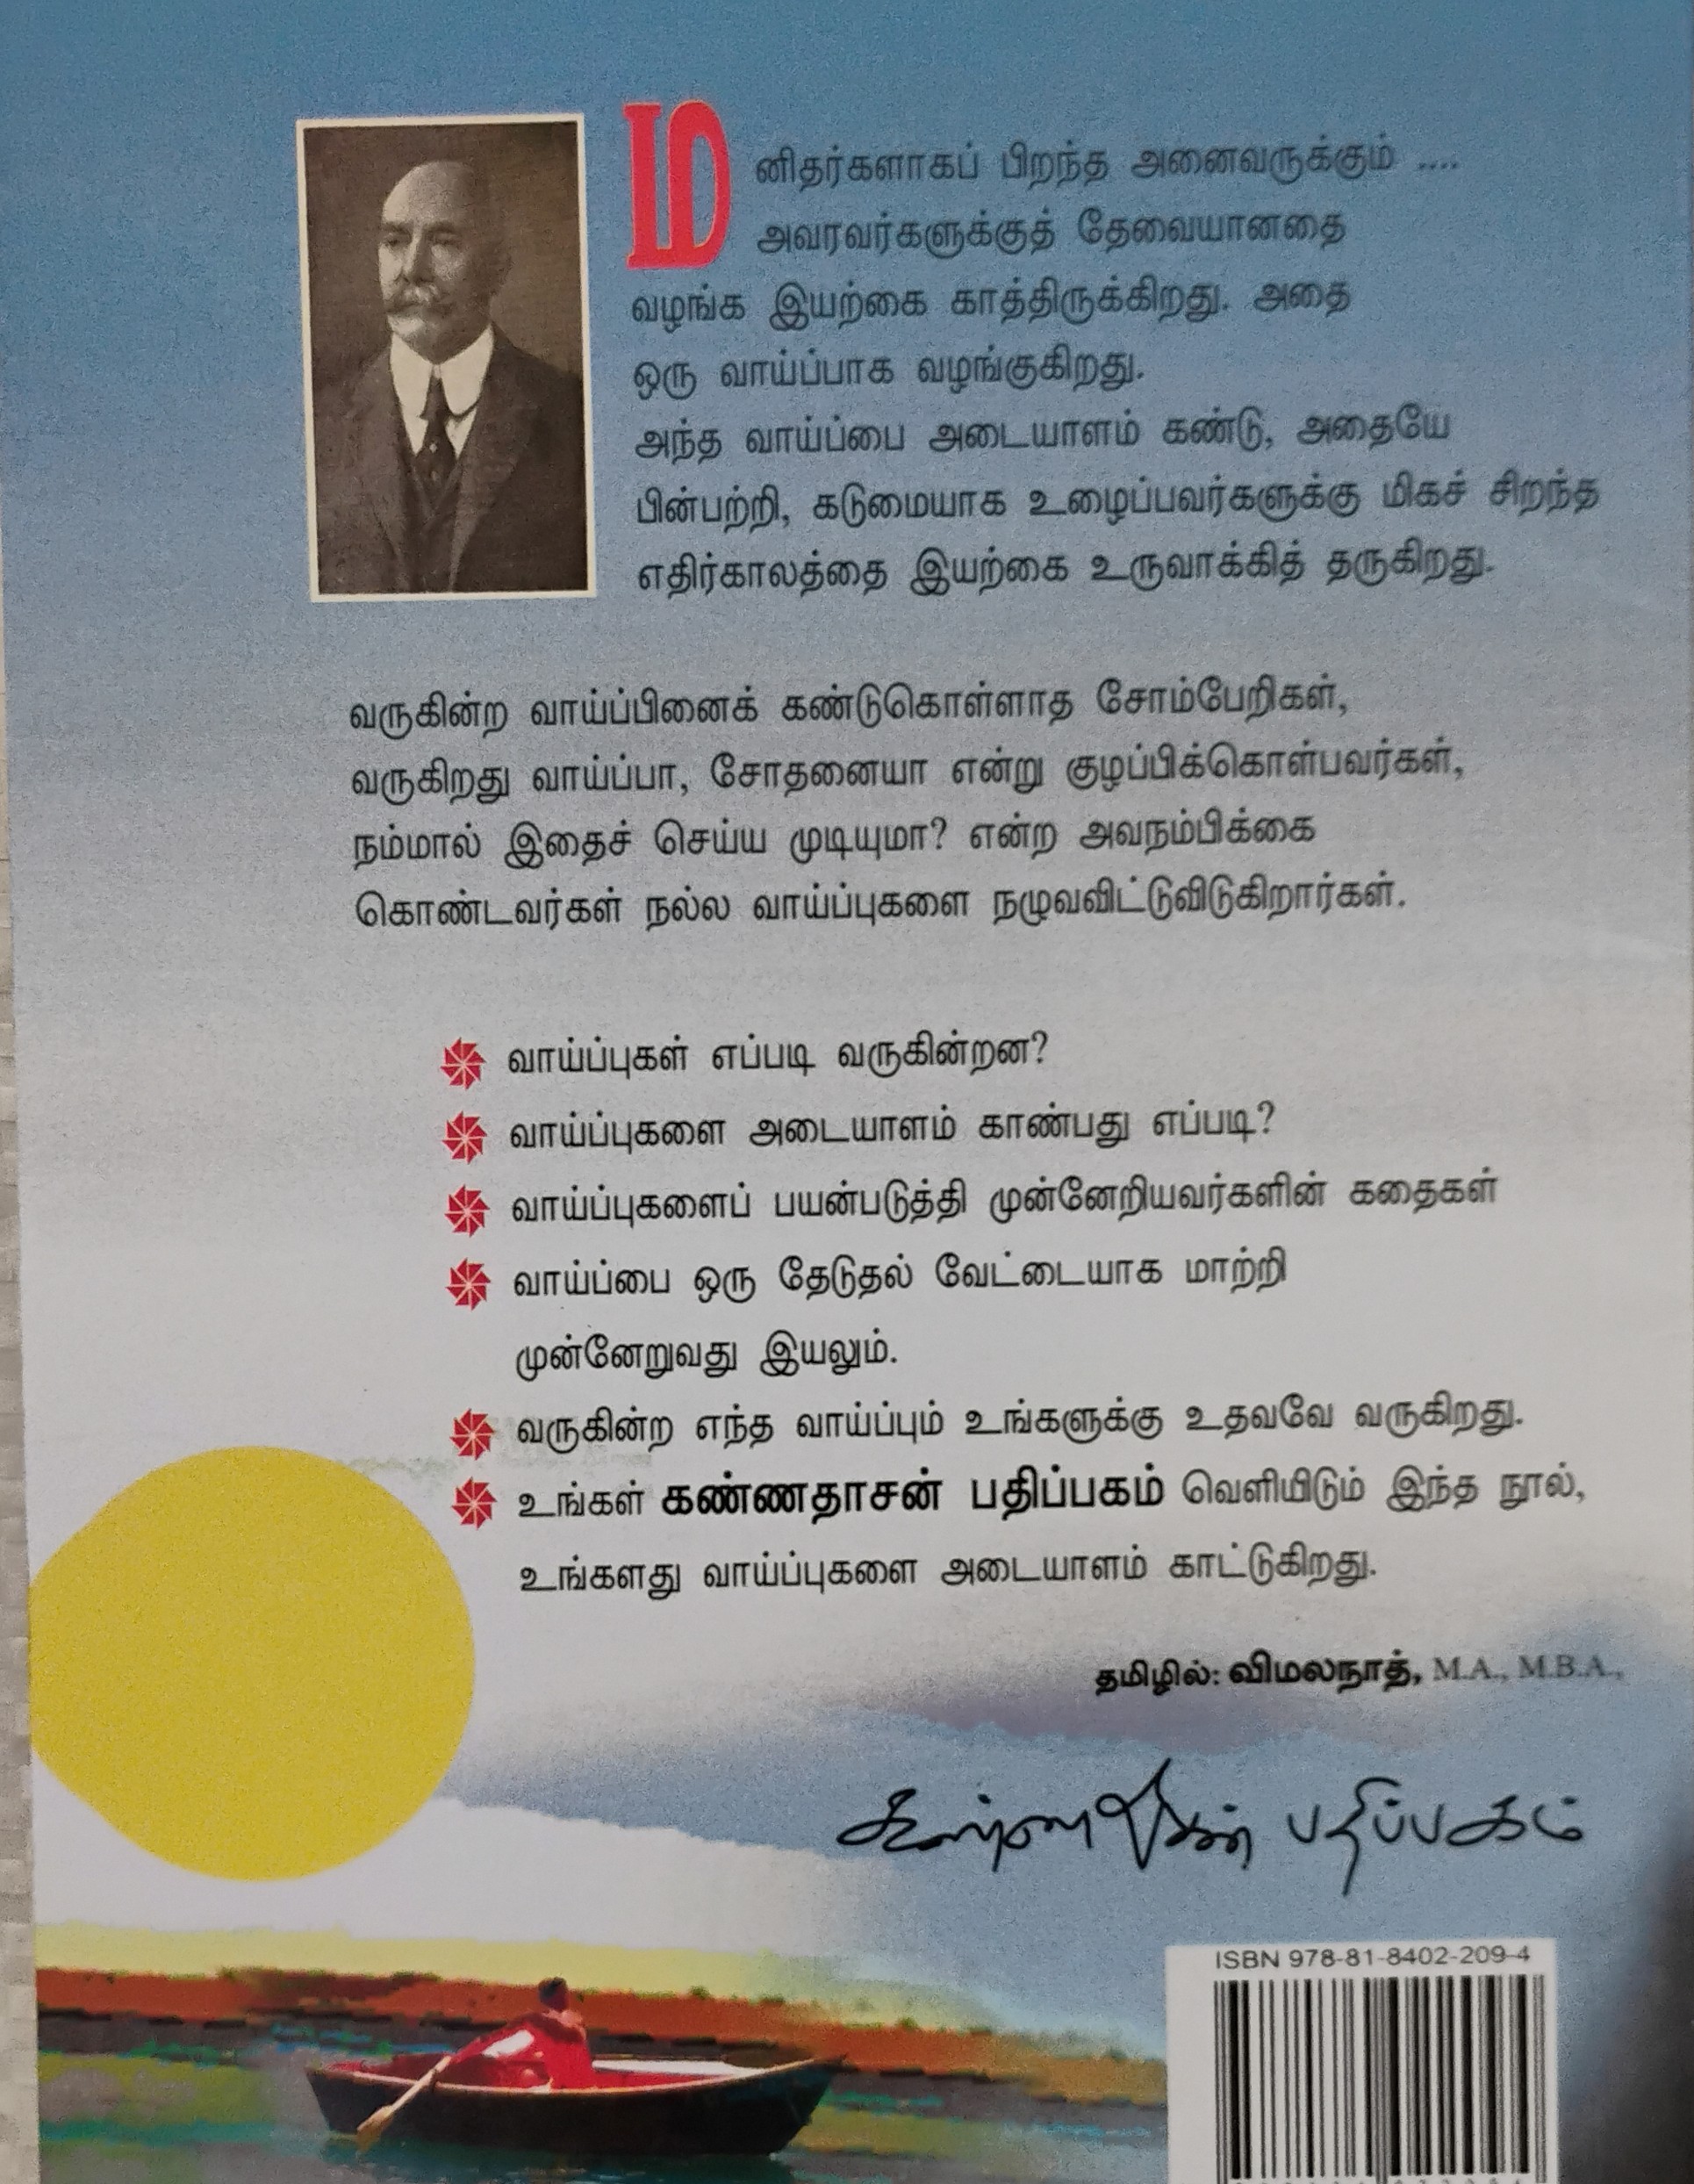 மனிதர்களாகப் பிறந்த அனைவருக்கும் ....
அவரவர்களுக்குத் தேவையானதை
வழங்க இயற்கை காத்திருக்கிறது. அதை
ஒரு வாய்ப்பாக வழங்குகிறது.
அந்த வாய்ப்பை அடையாளம் கண்டு, அதையே
பின்பற்றி, கடுமையாக உழைப்பவர்களுக்கு மிகச் சிறந்த
எதிர்காலத்தை இயற்கை உருவாக்கித் தருகிறது.
வருகின்ற வாய்ப்பினைக் கண்டுகொள்ளாத சோம்பேறிகள்,
வருகிறது வாய்ப்பா, சோதனையா என்று குழப்பிக்கொள்பவர்கள்,
நம்மால் இதைச் செய்ய முடியுமா? என்ற அவநம்பிக்கை
கொண்டவர்கள் நல்ல வாய்ப்புகளை நழுவவிட்டுவிடுகிறார்கள்.
வாய்ப்புகள் எப்படி வருகின்றன?
வாய்ப்புகளை அடையாளம் காண்பது எப்படி?
வாய்ப்புகளைப் பயன்படுத்தி முன்னேறியவர்களின் கதைகள்
வாய்ப்பை ஒரு தேடுதல் வேட்டையாக மாற்றி
முன்னேறுவது இயலும்.
வருகின்ற எந்த வாய்ப்பும் உங்களுக்கு உதவவே வருகிறது.
உங்கள் கண்ணதாசன் பதிப்பகம் வெளியிடும் இந்த நூல்,
உங்களது வாய்ப்புகளை அடையாளம் காட்டுகிறது.
தமிழில்: விமலநாத், M.A., M.B.A.,
கண்ணதாசன் பதிப்பகம்
ISBN 978-81-8402-209-4